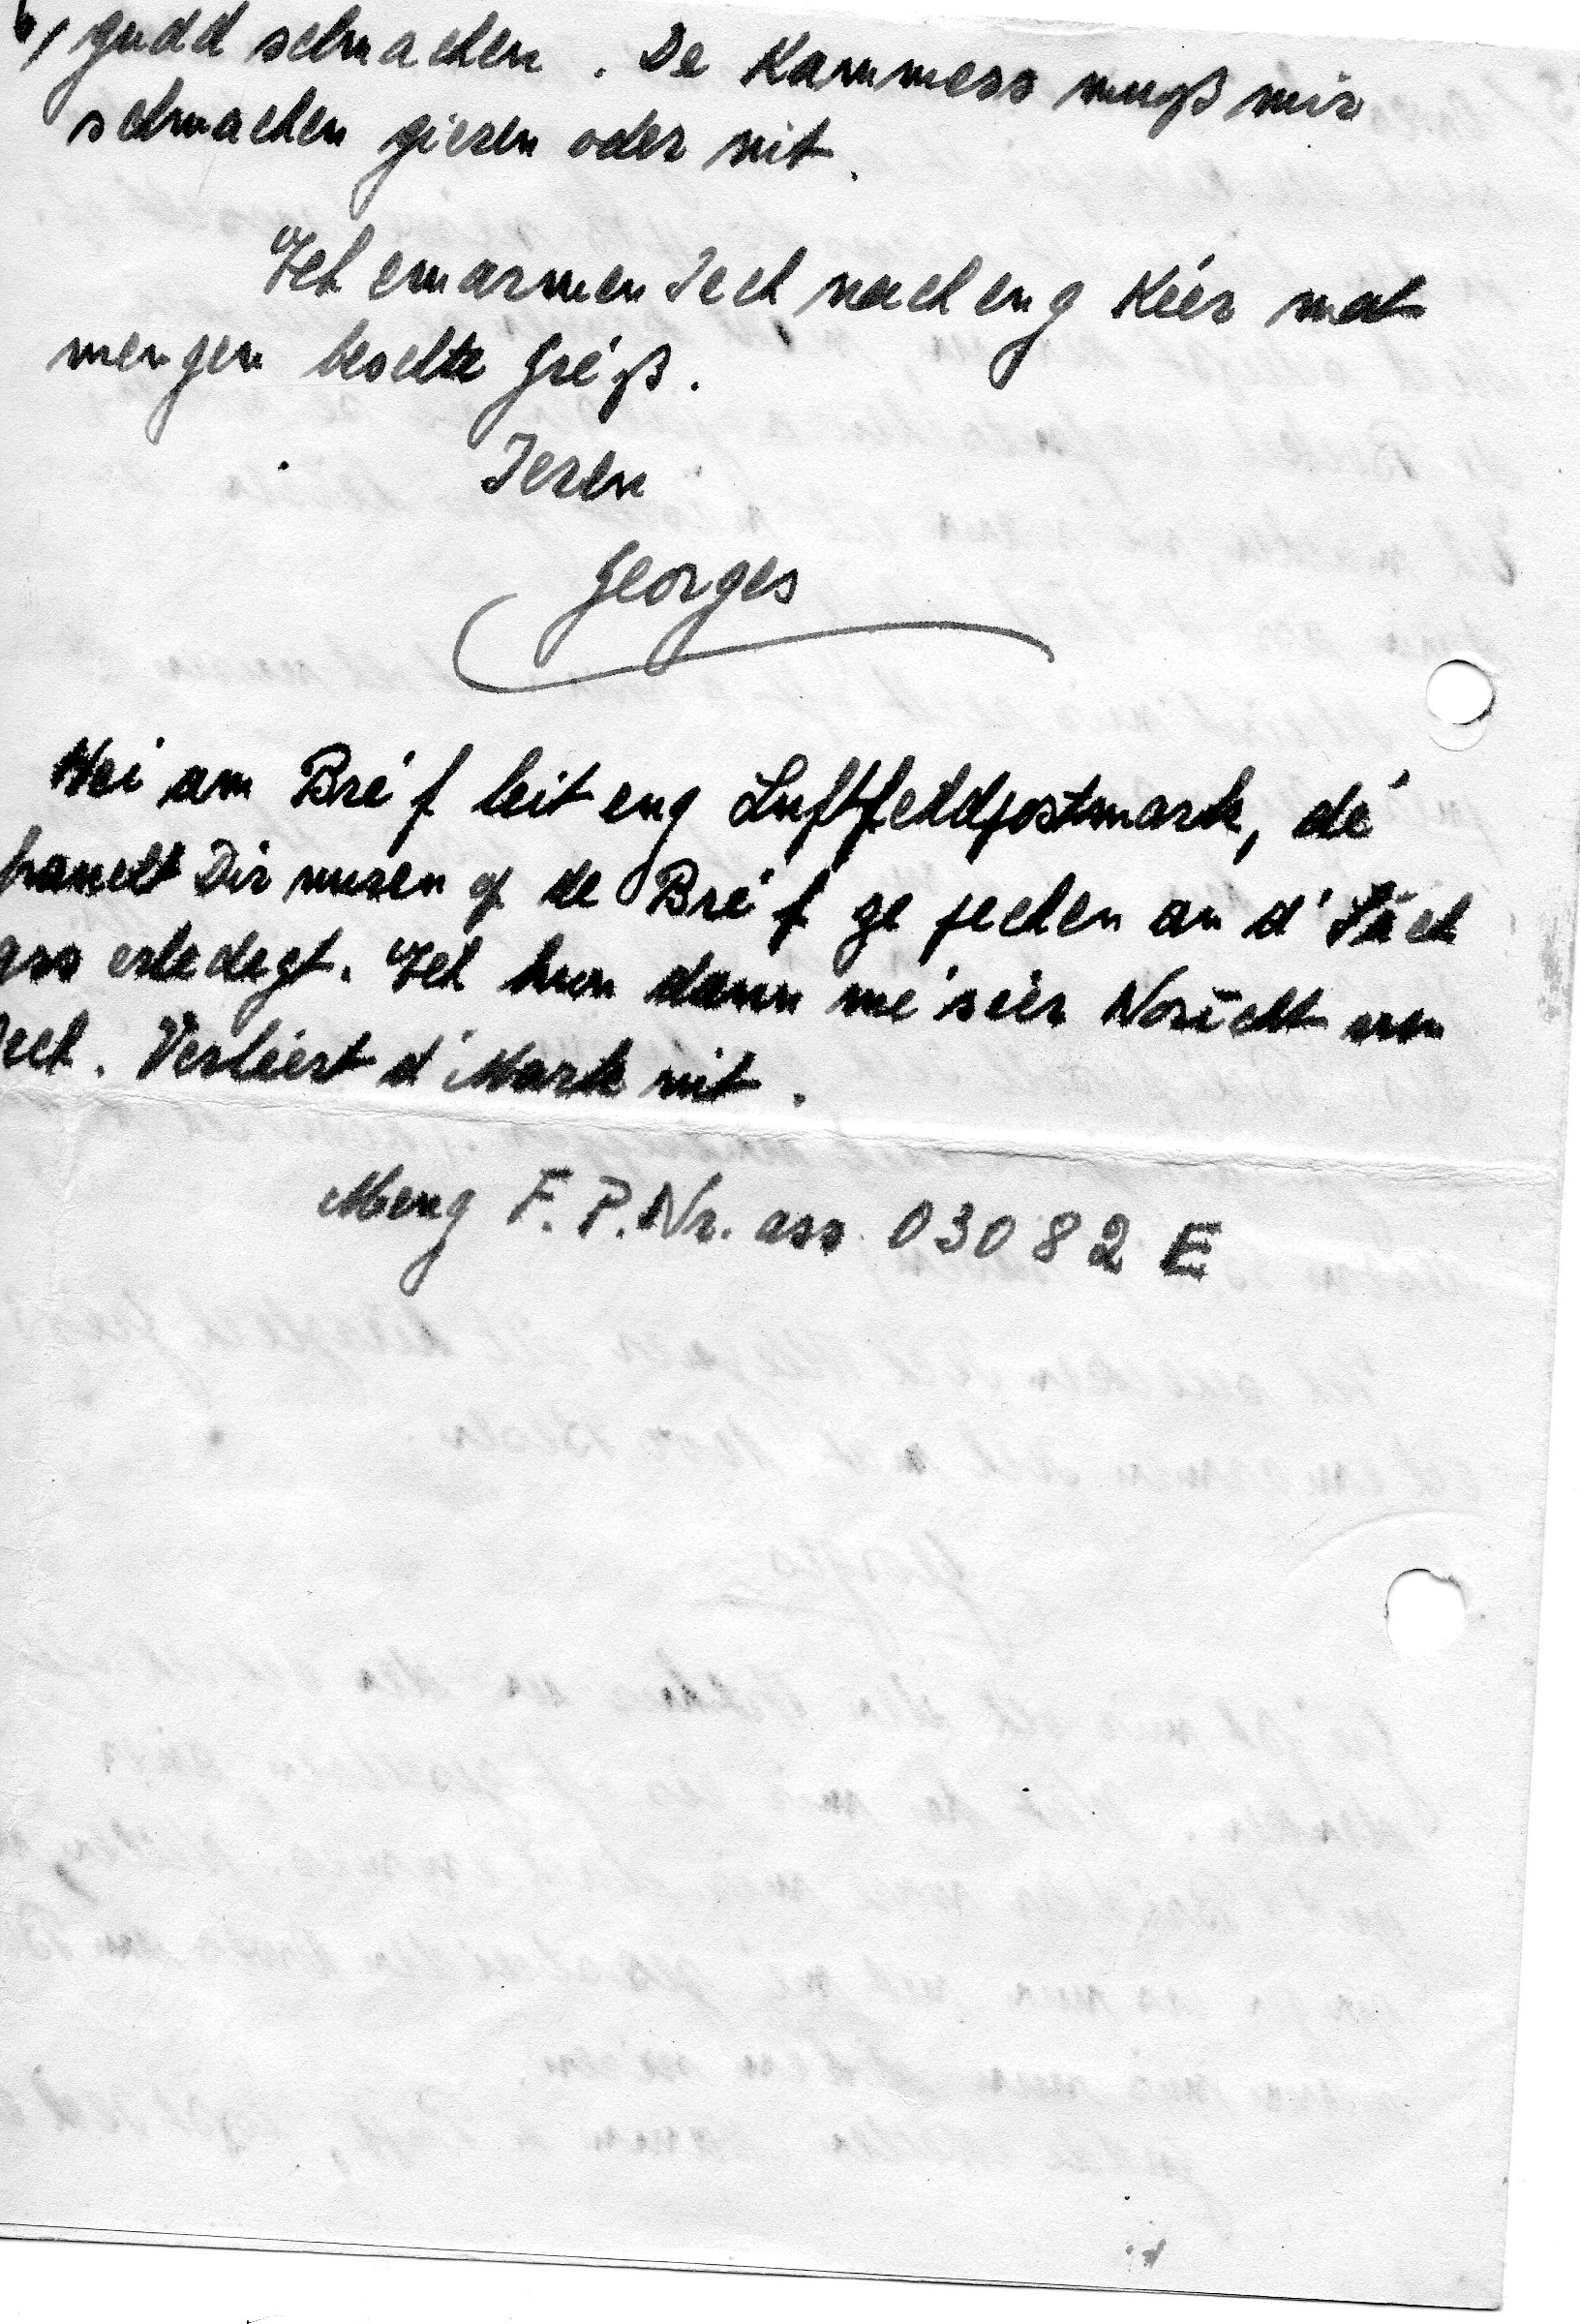 6/ gudd schmachen. De Kammess muß mir
schmachen gieren oder nit.
Ech emarmen Iech nach eng Kéer mat
mengen beschte Gréiß.
Ieren
Georges
Hei am Bréf leit eng Luftfeldpostmark, dé
braucht Dir nuren op de Bréf ze pechen an d'Sâch
ass erledegt. Ech hun dann mé séer Noricht vun
Iech. Verléert d'Mark nit.
Meng F.P.Nr. ass 03082 E